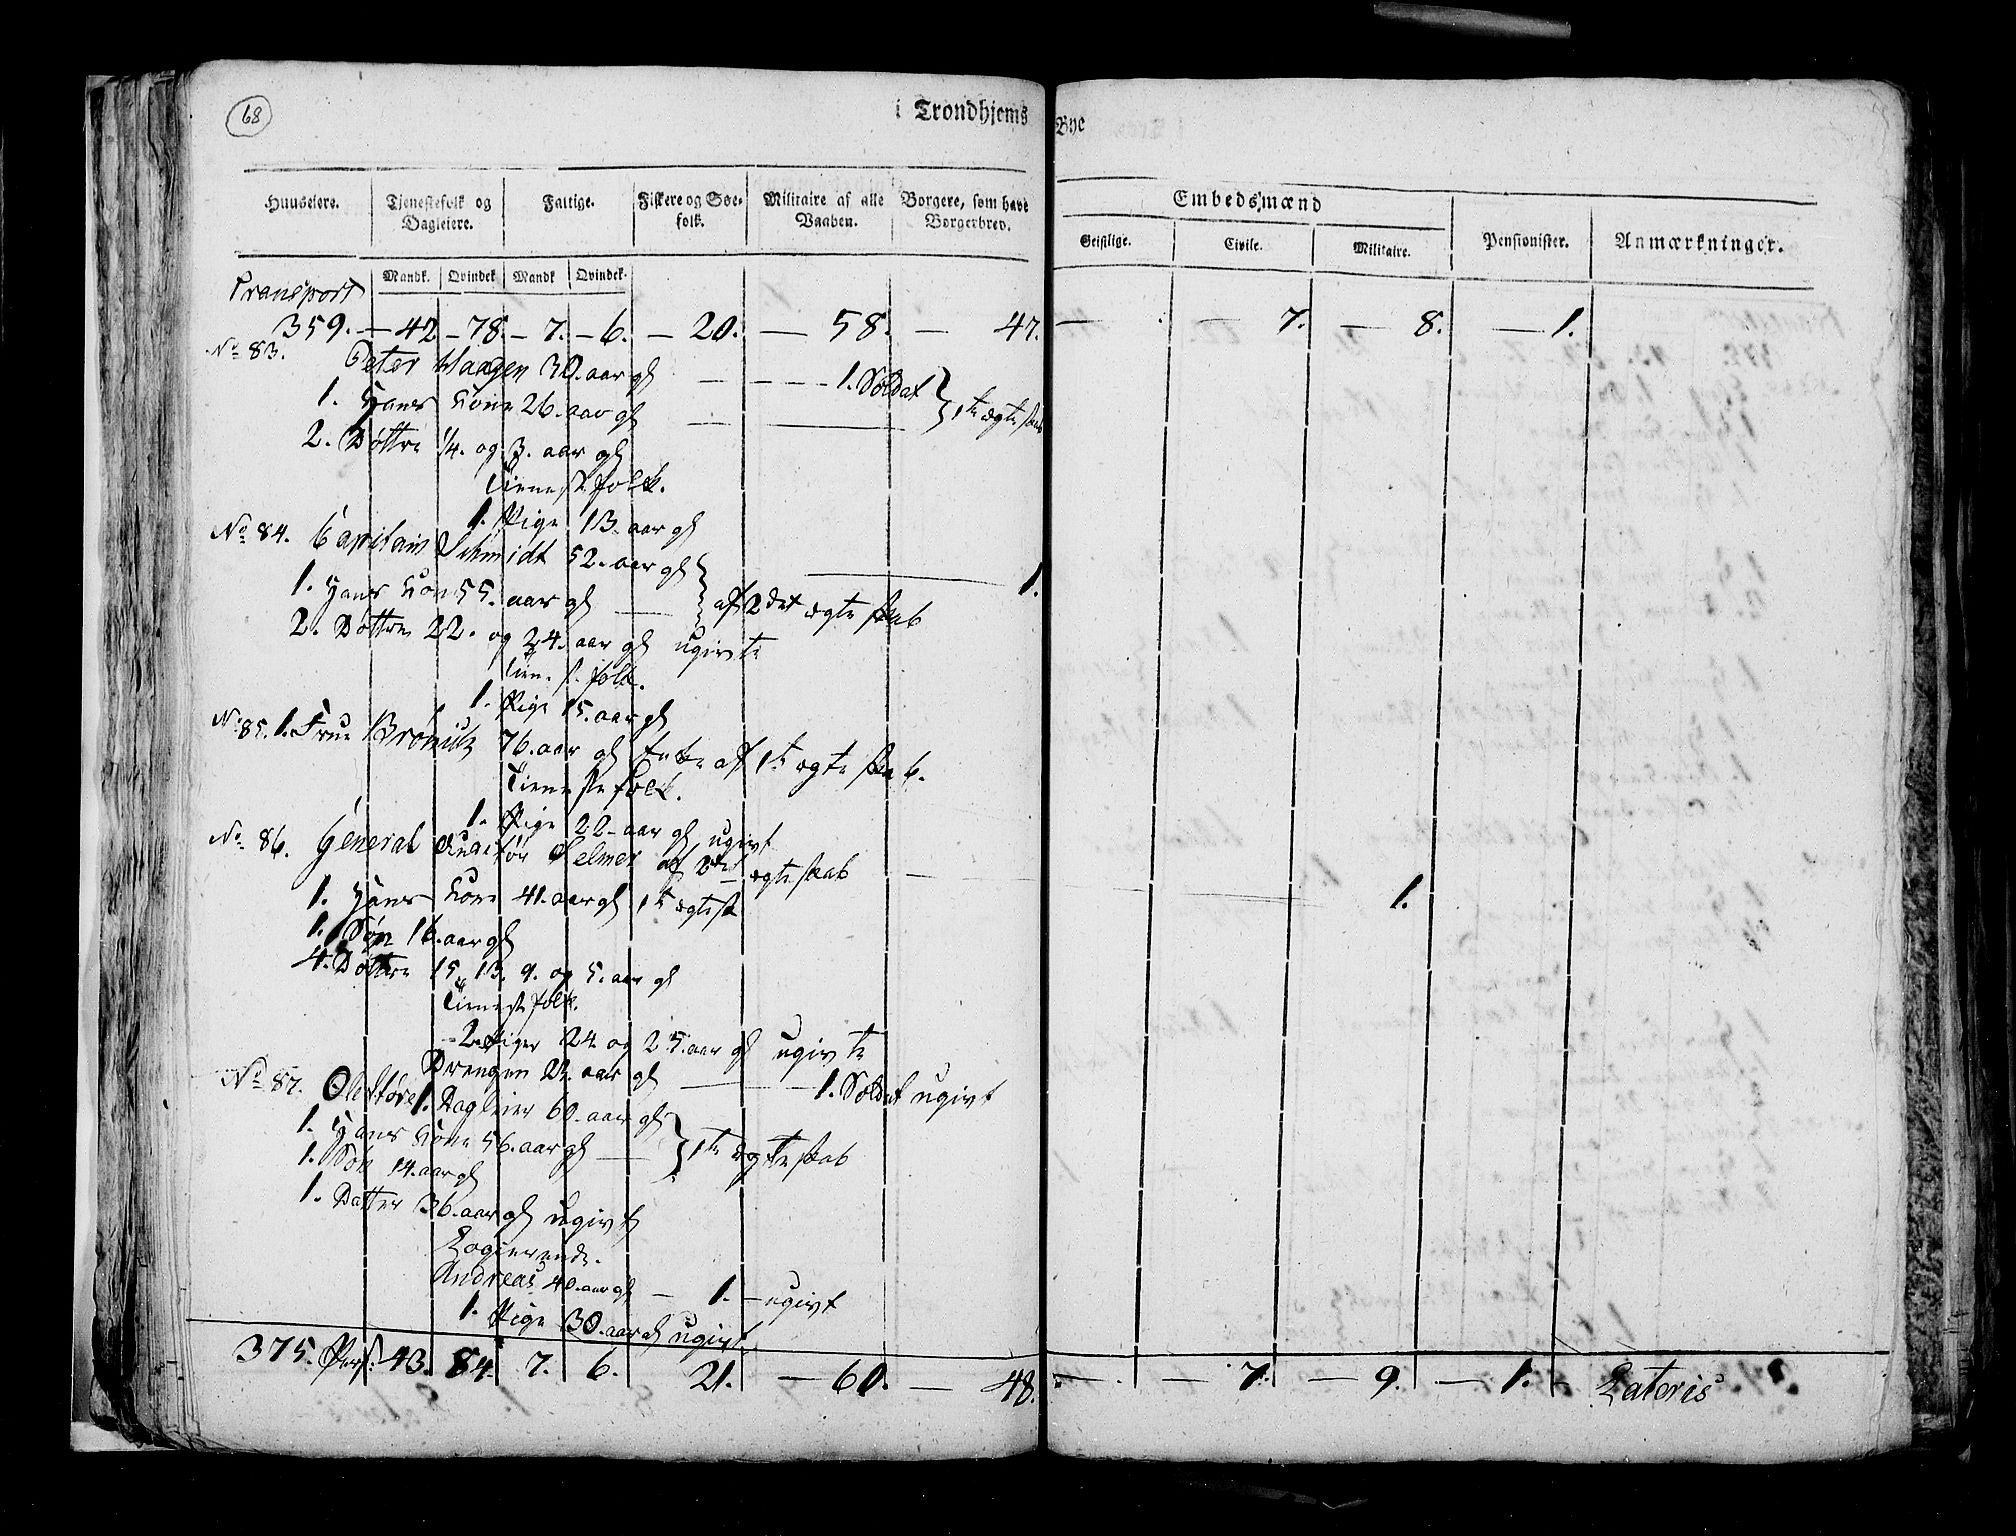 68
i Trondhjems Bye
Huuseiere. Tjenestefolk og Dagleiere. Fattige. Fiskere og Søefolk. Militaire af alle Vaaben. Borgere, som have Borgerbrev. Embedsmænd Pensionister. Anmærkninger.
Geistlige. Civile. Militaire.
Mandk. Qvindek Mandk Qvindek.
Transport
359. — 42 — 78. — 7. — 6. — 20. — 58. — 47. — . — 7. — 8. — 1.
No 83. Peter Haagen 30. aar gl — — — 1. Soldat
1. Hans Kone 26. aar gl — — 1te ægteskab
2. Døttre 1/4. og 3. aar gl
Tienestfolk.
1. Pige 13. aar gl
No 84. Capitain Schmidt 52. aar gl — 1.
1. Hans Kone 55. aar gl — af 2det ægteskab
2. Døttre 22. og 24. aar gl ugivte
Tienestfolk.
1. Pige 15. aar gl
No 85. 1. Frue 76. aar gl Enke af 1te ægteskab.
Tienestefolk.
1. Pige 22. aar gl ugivt
No 86. General Auditør Selmer af ægteskab — 1.
1. Hans Kone 41. aar gl 1te ægtesk
1. Søn 16. aar gl
4. Døttre 15. 13. 9. og 5. aar gl
Tienestfolk.
2. Piger 24. og 25. aar gl ugivte
Drengen 22. aar gl — 1. Soldat ugivt
No 87. 1. Dagleier 60. aar gl
1. Hans Kone 56. aar gl — 1te ægteskab
1. Søn 14. aar gl
1. Datter 36. aar gl ugivt
Logierende.
Andreas 40. aar gl — 1. — ugivt
1. Pige 30. aar gl ugivt
375. Pers: 43. 84. 7. 6. 21. — 60. — 48. — . — 7. — 9. — 1. Lateris